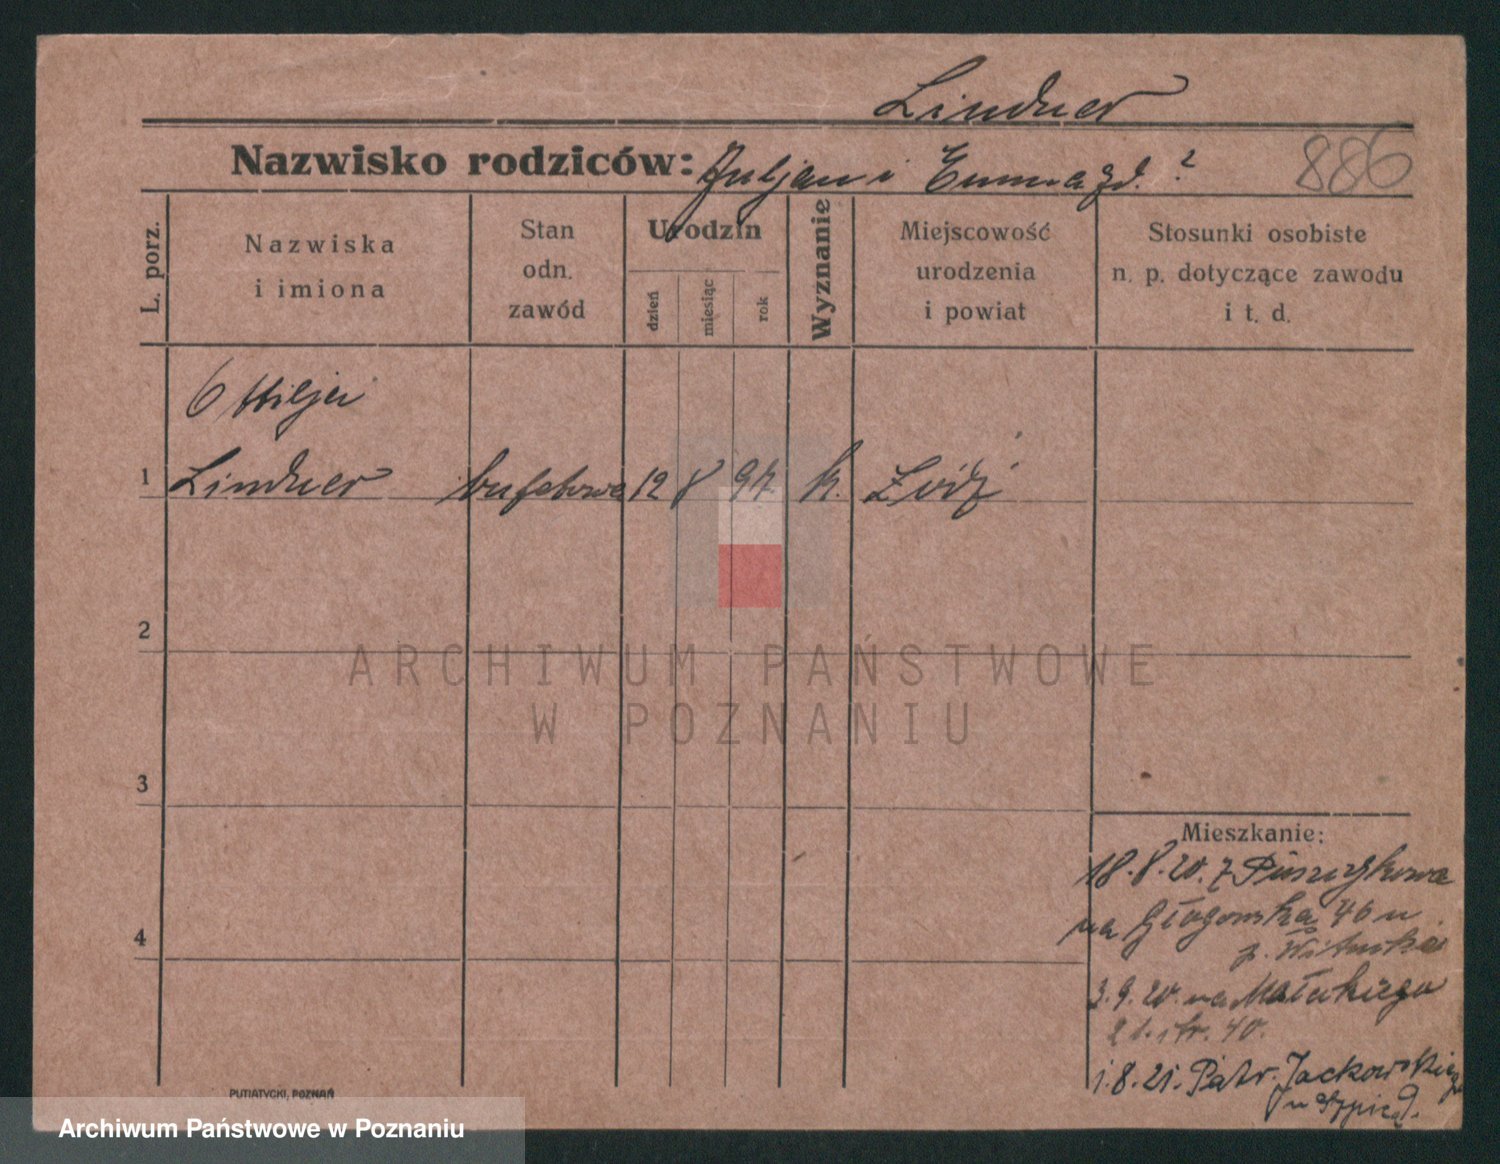 Lindner
Nazwisko rodziców: Juljan i Emma zd. ?
886
L. porz.
Nazwiska
i imiona
Stan
odn.
zawód
Urodzin
dzień
miesiąc
rok
Wyznanie
Miejscowość
urodzenia
i powiat
Stosunki osobiste
n. p. dotyczące zawodu
i t. d.
Ottilja
1 Lindner bufetowa 12 8 97 k. Łódź
2
3
4
ARCHIWUM PAŃSTWOWE
W POZNANIU
Mieszkanie:
18.8.20. z Puszczykowa
na Głogowska 46 u
p. Witucki
3.9.20. na Małeckiego
21. str. 40.
1.8.21. Patr. Jackowskiego
PUTIATYCKI, POZNAŃ
Archiwum Państwowe w Poznaniu